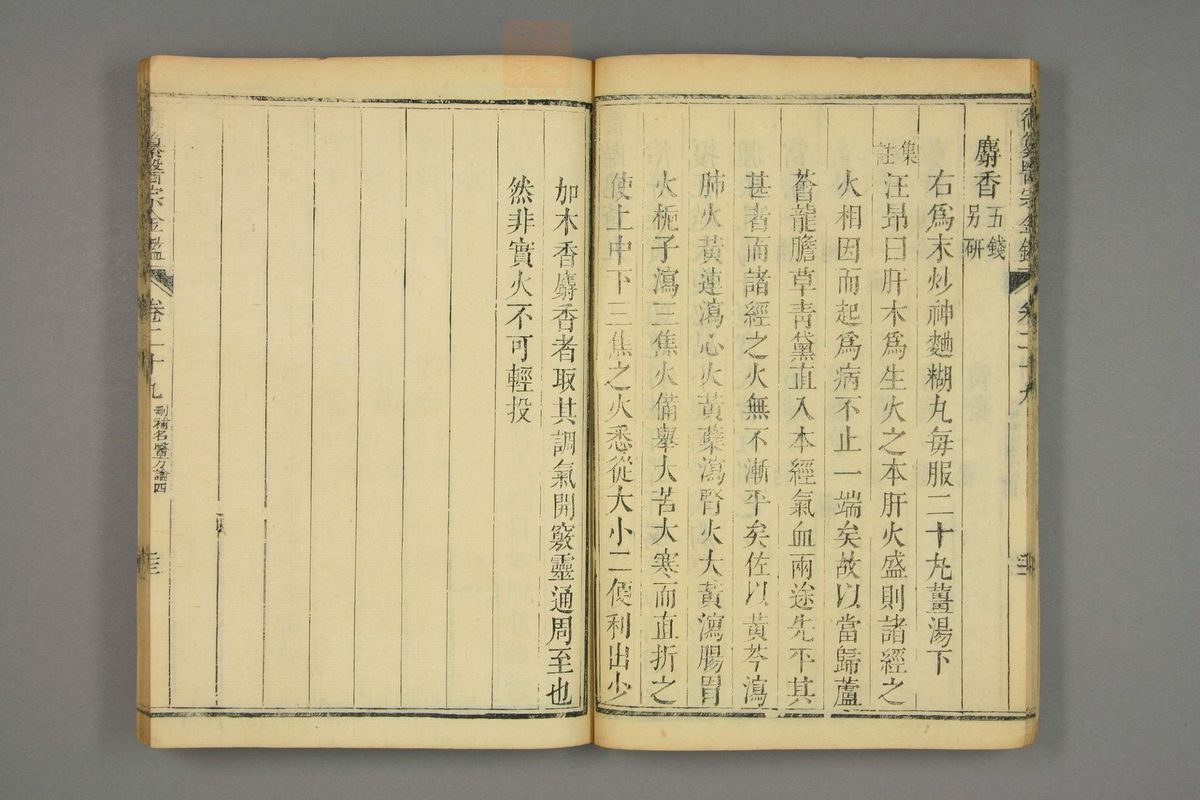 御纂醫宗金鑑 卷二十九
麝香五錢另研
右爲末炒神麯糊丸每服二十丸薑湯下
集註汪昻曰肝木爲生火之本肝火盛則諸經之
火相因而起爲病不止一端矣故以當歸蘆
薈龍膽草青黛直入本經氣血兩途先平其
甚者而諸經之火無不漸平矣佐以黃芩瀉
肺火黃連瀉心火黃蘗瀉腎火大黃瀉腸胃
火梔子瀉三焦火備舉大苦大寒而直折之
使上中下三焦之火悉從大小二便利出少
加木香麝香者取其調氣開竅靈通周至也
然非實火不可輕投
纂醫宗金鑑 卷二十九 刪補名醫方論四